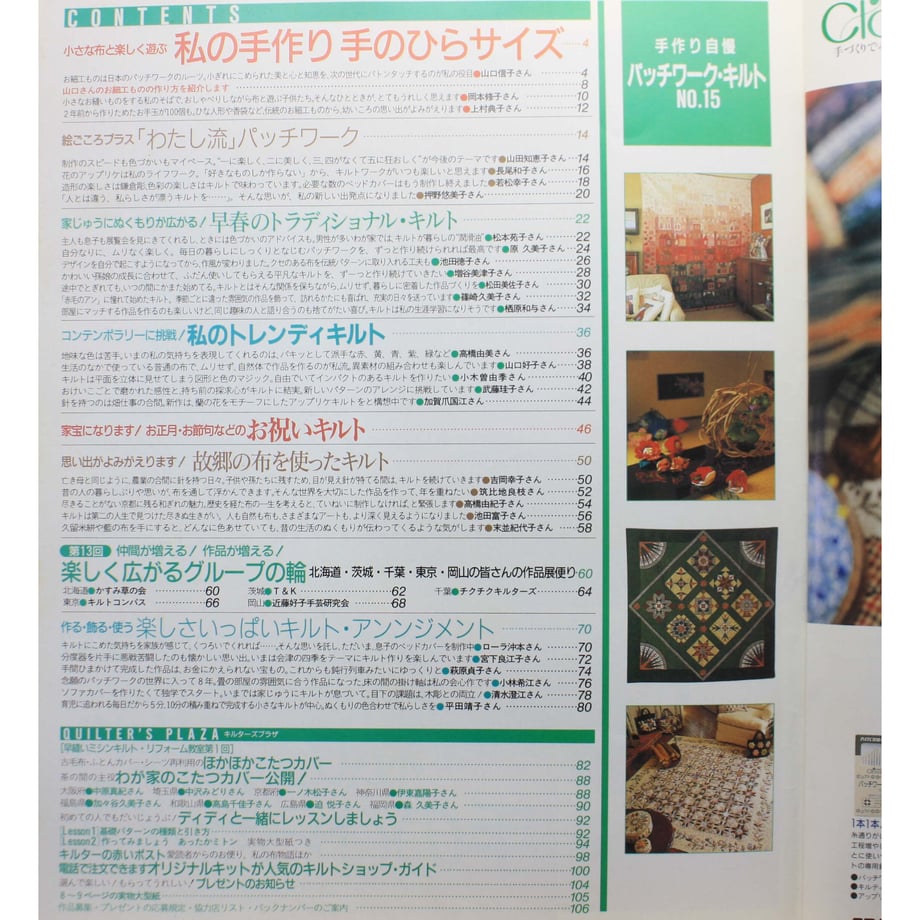 CONTENTS
小さな布と楽しく遊ぶ 私の手作り 手のひらサイズ……4
お細工ものは日本のパッチワークのルーツ。小ぎれにこめられた美と心と知恵を、次の世代にバトンタッチするのが私の役目●山口信子さん…4
山口さんのお細工ものの作り方を紹介します……8
小さなお縫いものをする私のそばで、おしゃべりしながら布と遊ぶ子供たち。そんなひとときが、とてもうれしく思えます●岡本修子さん……10
2年前から作りためたお手玉が100個も。ひな人形や香袋など、伝統のお細工ものから、幼いころの思い出がよみがえります●上村典子さん……12
絵ごころプラス「わたし流」パッチワーク……14
制作のスピードも色づかいもマイペース。“一に楽しく、二に美しく、三、四がなくて五に狂おしく”が今後のテーマです●山田知恵子さん…14
花のアップリケは私のライフワーク。「好きなものしか作らない」から、キルトワークがいつも楽しいと思えます●長尾和子さん……16
造形の楽しさは鎌倉彫、色彩の楽しさはキルトで味わっています。必要な数のベッドカバーはもう制作し終えました●若松幸子さん……18
「人とは違う、私らしさが漂うキルトを……」。そんな思いが、私の新しい出発点になりました●押野悠美子さん……20
家じゅうにぬくもりが広がる! 早春のトラディショナル・キルト……22
主人も息子も展覧会を見にきてくれるし、ときには色づかいのアドバイスも。男性が多いわが家では、キルトが暮らしの“潤滑油”●松本苑子さん……22
自分なりに、ムリなく楽しく。毎日の暮らしにしっくりとなじむパッチワークを、ずっと作り続けられれば最高です●原 久美子さん…24
デザインを自分で起こすようになってから、作風が変わりました。クセのある布を伝統パターンに取り入れる工夫も●池田徳子さん……26
かわいい孫娘の成長に合わせて、ふだん使いしてもらえる平凡なキルトを、ずーっと作り続けていきたい●増谷美津子さん……28
途中でとぎれても、いつの間にかまた始めてる。キルトとはそんな関係を保ちながら、ムリせず、暮らしに密着した作品づくりを●松田美佐子さん……30
「赤毛のアン」に憧れて始めたキルト。季節ごとに違った雰囲気の作品を飾って、訪れるかたにも喜ばれ、充実の日々を送っています●篠崎久美子さん……32
部屋にマッチする作品を作るのも楽しいけど、同じ趣味の人と語り合うのも捨てがたい喜び。キルトは私の生涯学習になりそうです●栖原和与さん……34
コンテンポラリーに挑戦! 私のトレンディキルト……36
地味な色は苦手。いまの私の気持ちを表現してくれるのは、パキッとして派手な赤、黄、青、紫、緑など●高橋由美さん……36
生活のなかで使っている普通の布で、ムリせず、自然体で作品を作るのが私流。異素材の組み合わせも楽しんでいます●山口好子さん……38
キルトは平面を立体に見せてしまう図形と色のマジック。自由でいてインパクトのあるキルトを作りたい●小木曽由季さん……40
おけいこごとで磨かれた感性と、持ち前の探求心がキルトに結実。新しいパターンのアレンジに挑戦しています●武藤珪子さん……42
針を持つのは畑仕事の合間。新作は、蘭の花をモチーフにしたアップリケキルトをと構想中です●加賀爪国江さん……44
家宝になります! お正月・お節句などの お祝いキルト……46
思い出がよみがえります! 故郷の布を使ったキルト……50
亡き母と同じように、農業の合間に針を持つ日々。子供や孫たちに残すため、目が見え針が持てる間は、キルトを続けていきます●吉岡幸子さん……50
昔の人の暮らしぶりや思いが、布を通して浮かんできます。そんな世界を大切にした作品を作って、年を重ねたい●筑比地良枝さん……52
尽きることがない京都に残る和ぎれの魅力。歴史を経た布の一生を考えると、ていねいに制作しなければ、と緊張します●高橋由紀子さん……54
キルトは第二の人生で見つけた尽きぬ生きがい。人も自然も布も、さまざまなアートも、より深く見えるようになりました●池田富子さん……56
久留米絣や藍の布を手にすると、どんなに色あせていても、昔の生活のぬくもりが伝わってくるような気がします●末並紀代子さん……58
第13回 仲間が増える! 作品が増える!
楽しく広がるグループの輪 北海道・茨城・千葉・東京・岡山の皆さんの作品展便り…60
北海道●かすみ草の会……60 茨城●T&K……62 千葉●チクチクキルターズ……64
東京●キルトコンパス……66 岡山●近藤好子手芸研究会……68
作る・飾る・使う 楽しさいっぱいキルト・アンンジメント……70
キルトにこめた気持ちを家族が感じて、くつろいでくれれば……。そんな思いを託し、ただいま、息子のベッドカバーを制作中●ローラ沖本さん……70
分度器を片手に悪戦苦闘したのも懐かしい思い出。いまは会津の四季をテーマにキルト作りを楽しんでいます●宮下良江子さん……72
手間ひまかけて完成した作品は、お金にかえられない宝もの。これからも、鈍行列車みたいにゆっくりと●萩原貞子さん……74
念願のパッチワークの世界に入って8年。畳の部屋の雰囲気に合う作品になった、床の間の掛け軸は私の会心作です●小林希江さん……76
ソファカバーを作りたくて独学でスタート。いまでは家じゅうにキルトが息づいて。目下の課題は、木彫との両立!●清水澄江さん……78
育児に追われる毎日だから5分、10分の積み重ねで完成する小さなキルトが中心。ぬくもりの色合わせで私らしさを●平田靖子さん……80
QUILTER'S PLAZA キルターズプラザ
[早縫いミシンキルト・リフォーム教室第1回]
古毛布・ふとんカバー・シーツ再利用の ほかほかこたつカバー……82
茶の間の主役 わが家のこたつカバー公開!……88
大阪府●中原真紀さん 埼玉県●中沢みどりさん 京都府●一ノ木松子さん 神奈川県●伊東嘉陽子さん……88
福島県●加々谷久美子さん 和歌山県●高畠千佳子さん 広島県●迫 悦子さん 福岡県●森 久美子さん……90
初めての人でもだいじょうぶ! ディティと一緒にレッスンしましょう……92
[Lesson1]基礎パターンの種類と引き方……92
[Lesson2]作ってみましょう あったかミトン 実物大型紙つき……94
キルターの赤いポスト 愛読者からのお便り、私の布物語ほか……98
電話で注文できます オリジナルキットが人気のキルトショップ・ガイド……100
選んで楽しい! もらってうれしい! プレゼントのお知らせ……104
8〜9ページの実物大型紙……105
作品募集・プレゼントの応募規定・協力店リスト・バックナンバーのご案内……106
手作り自慢
パッチワーク・キルト
NO.15
Clo
手づくりで
1本1本
糸通りが
工程増や
とに使い
トの専用
●パッチワー
●キルティ
●アップリ